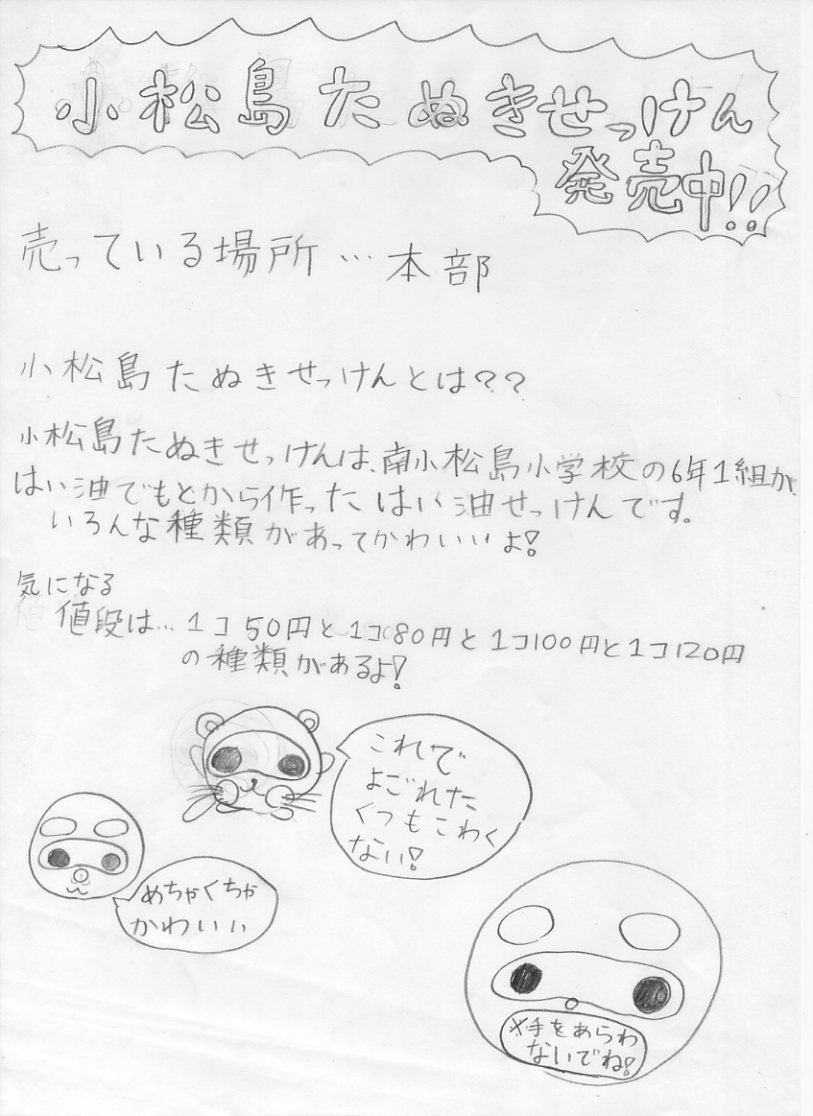 小松島たぬきせっけん
発売中!!
売っている場所…本部
小松島たぬきせっけんとは??
小松島たぬきせっけんは、南小松島小学校の6年1組が、
はい油でもとから作ったはい油せっけんです。
いろんな種類があってかわいいよ!
気になる
値段は…1コ50円と1コ80円と1コ100円と1コ120円
の種類があるよ!
これで
よごれた
くつもこわく
ない!
めちゃくちゃ
かわいい
※手をあらわ
ないでね!